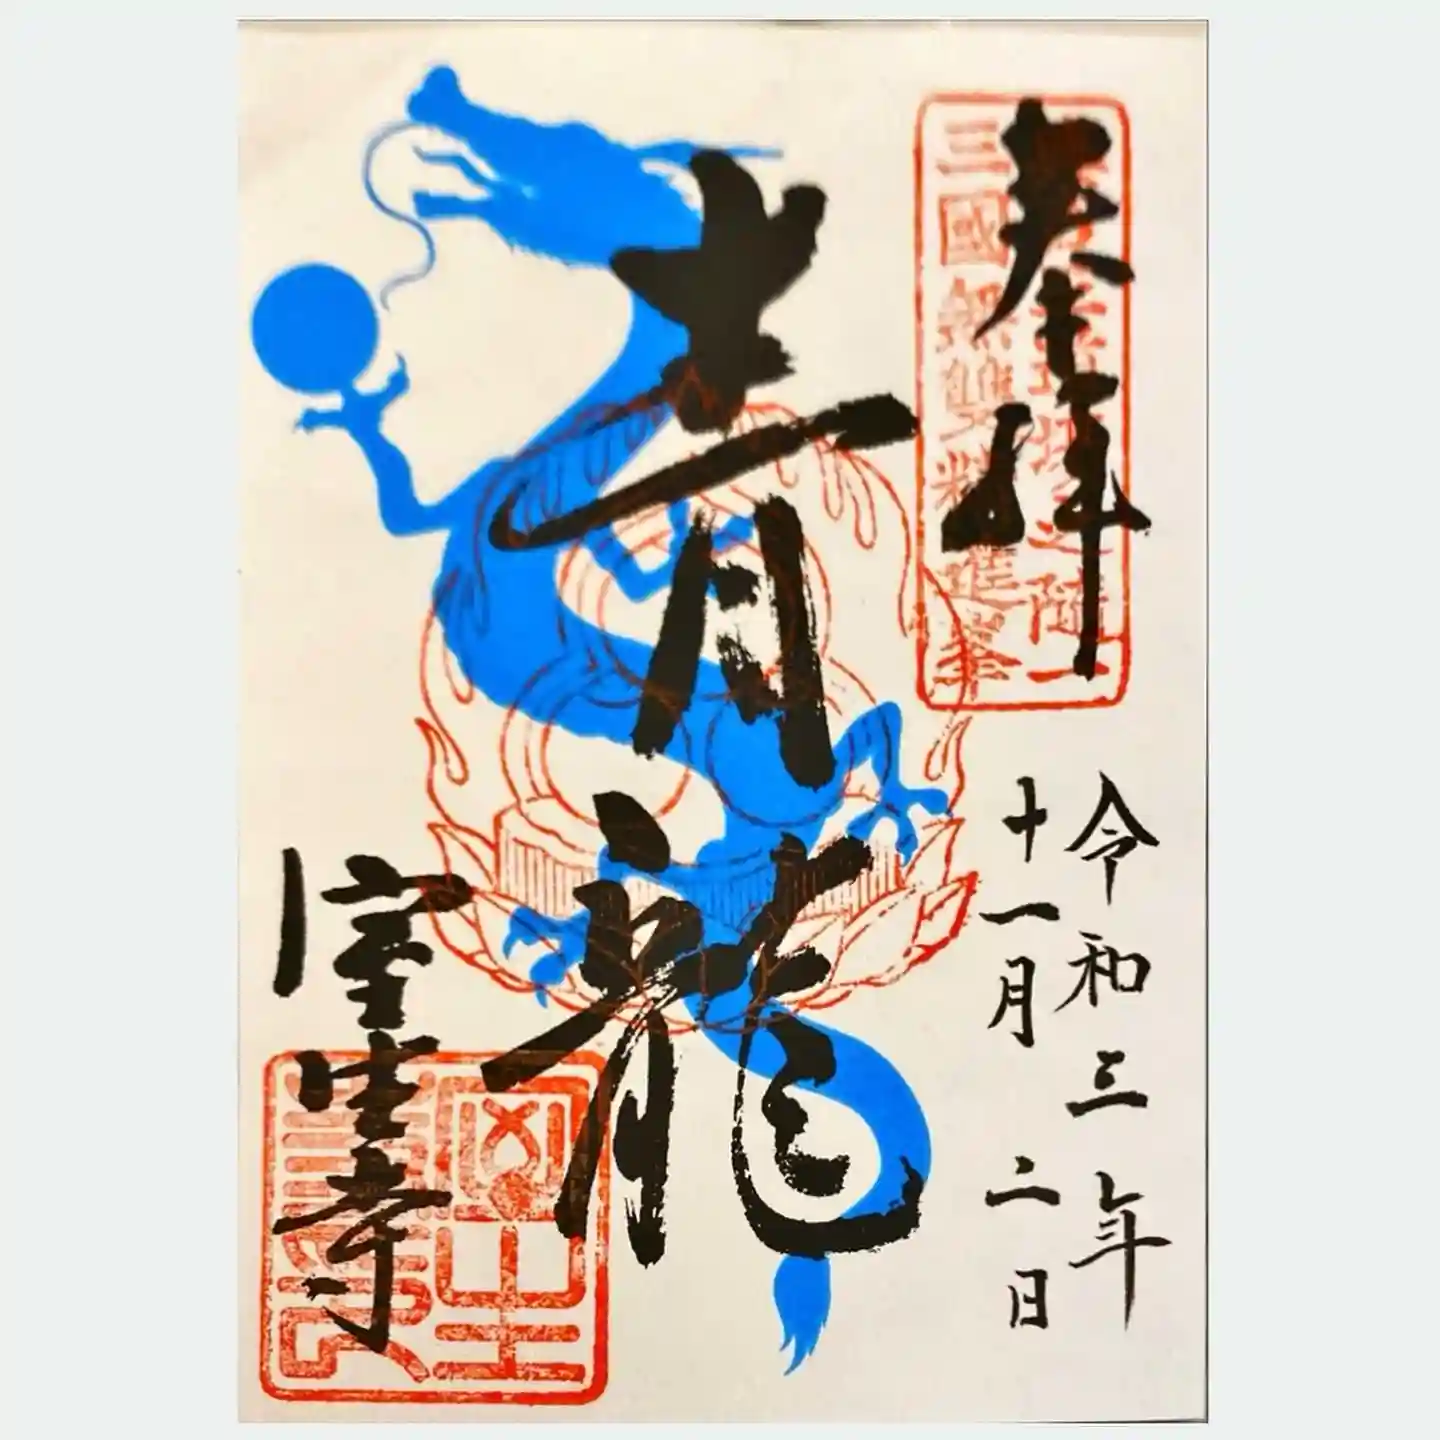 奉拝
三國無雙
令和三年
十一月二日
青龍
室生寺